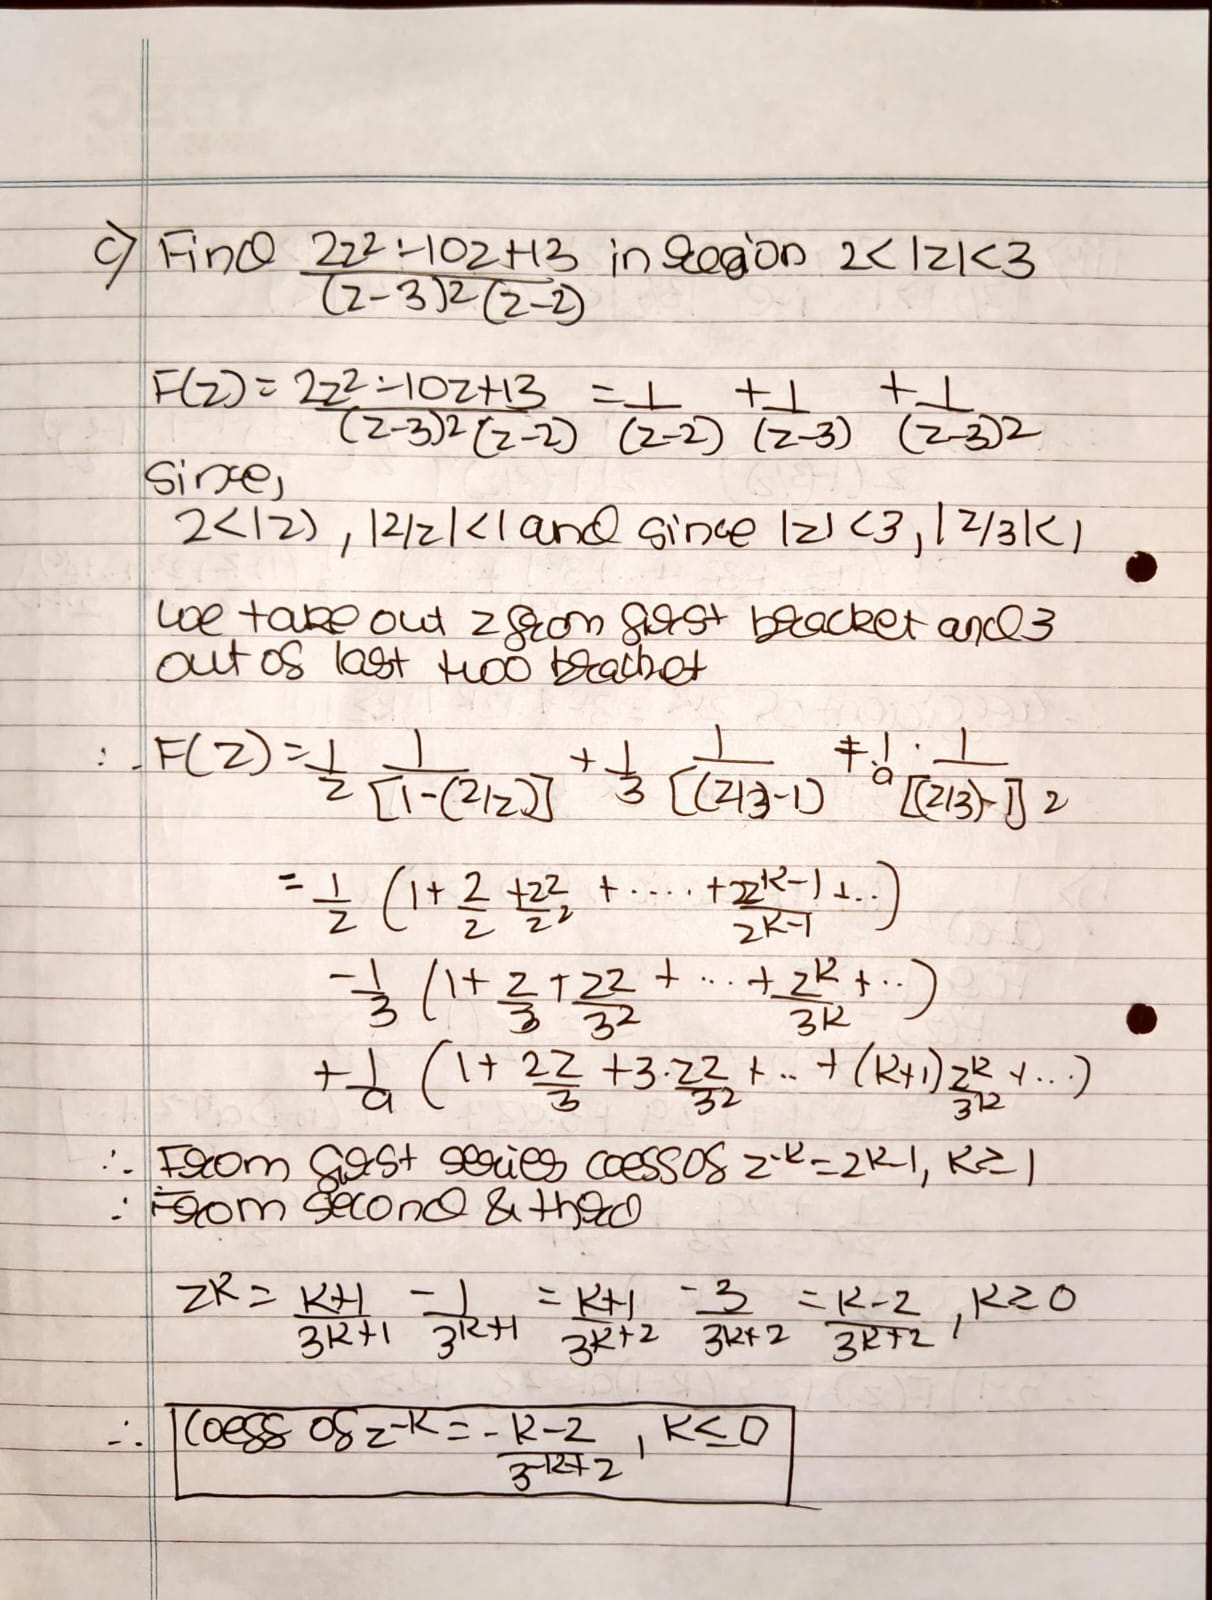 c) Find 2z² - 10z + 13 / (z-3)² (z-2) in region 2 < |z| < 3
F(z) = 2z² - 10z + 13 / (z-3)² (z-2) = 1/(z-2) + 1/(z-3) + 1/(z-3)²
Since,
2 < |z|, |2/z| < 1 and since |z| < 3, |z/3| < 1
we take out z from first bracket and 3
out of last two bracket
∴ F(z) = 1/z 1/[1-(2/z)] + 1/3 1/[(z/3-1) + 1/9 · 1/[(z/3)-1]²
= 1/z (1 + 2/z + 2²/z² + .... + 2^(k-1)/z^(k-1) + ..)
- 1/3 (1 + z/3 + z²/3² + ... + z^k/3^k + ..)
+ 1/9 (1 + 2z/3 + 3·z²/3² + .. + (k+1) z^k/3^k + ...)
∴ From first series coeff of z^-k = 2^(k-1), k ≥ 1
∴ From second & third
z^k = k+1/3^(k+1) - 1/3^(k+1) = k+1/3^(k+2) - 3/3^(k+2) = k-2/3^(k+2), k ≥ 0
∴ coeff of z^-k = -k-2/3^(-k+2), k ≤ 0